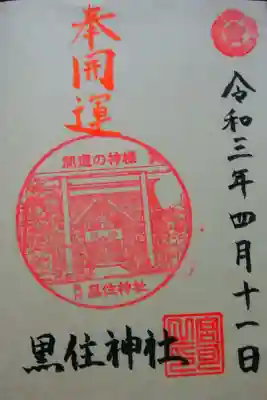 令和三年四月十一日
奉開運
開運の神様
黒住神社
黒住神社